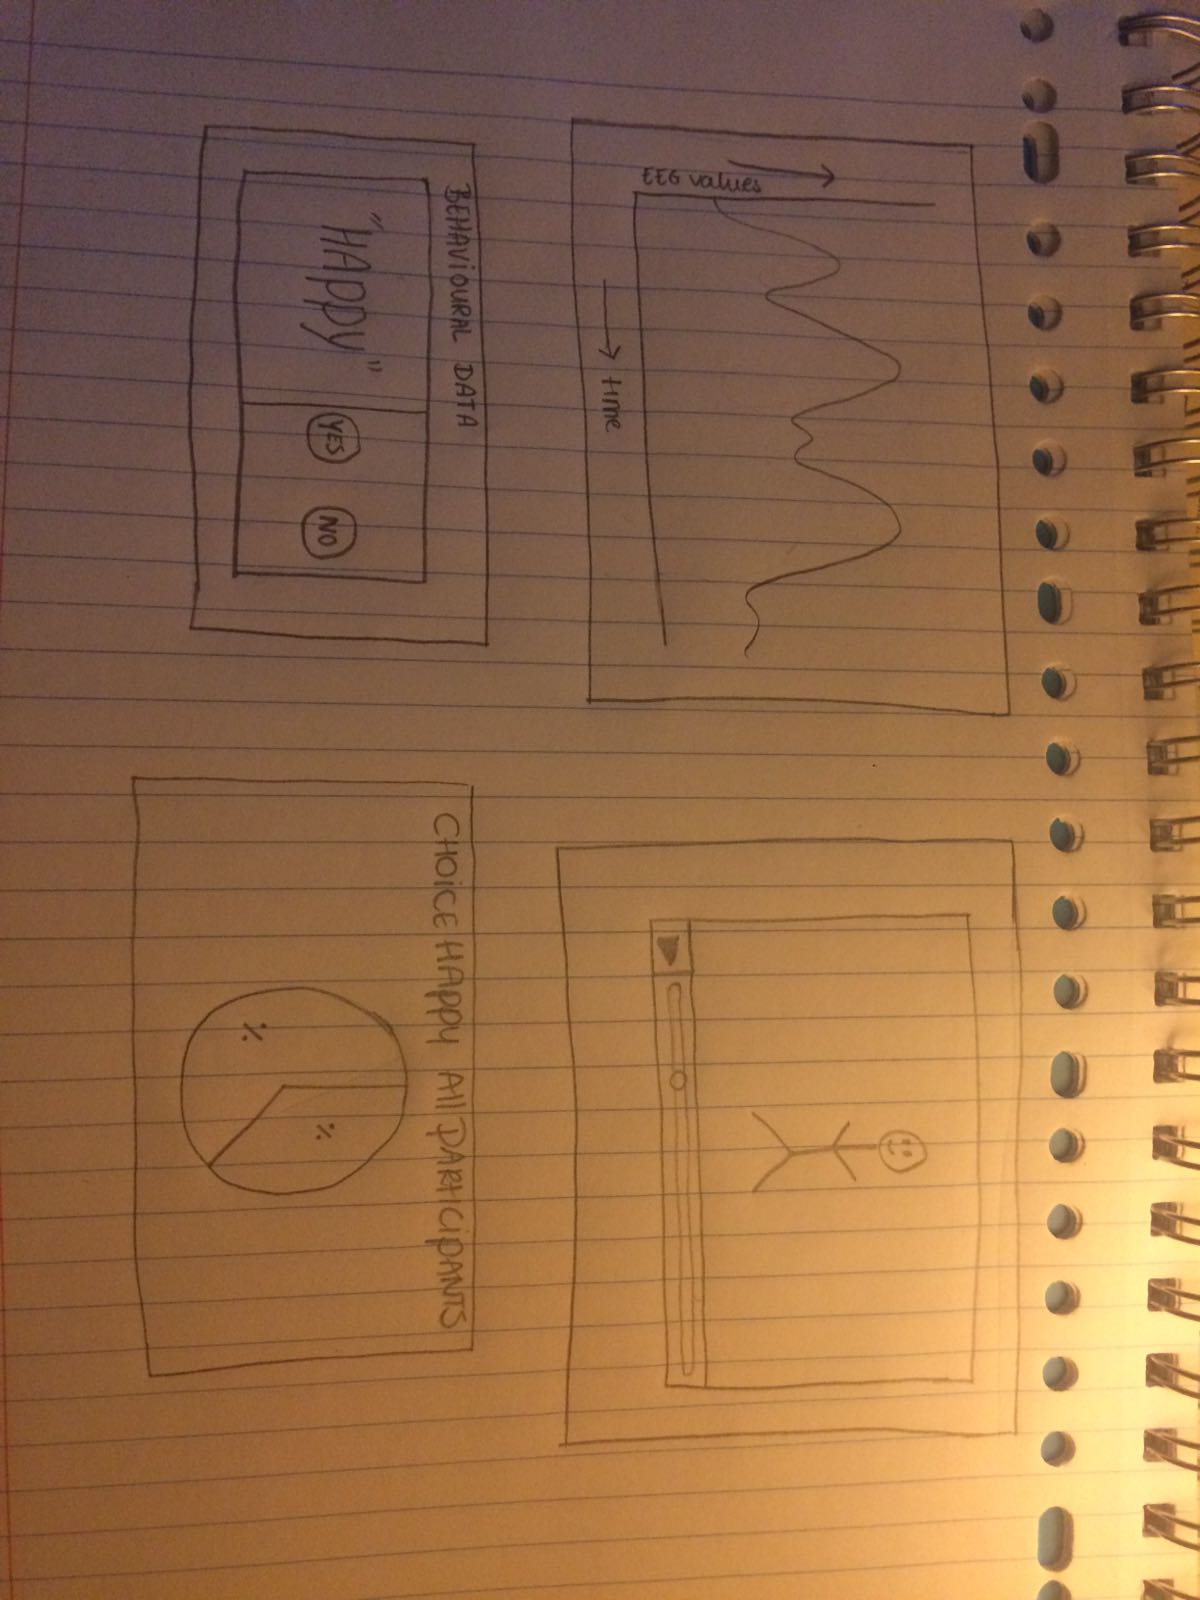 EEG values
time
BEHAVIOURAL DATA
"HAPPY"
YES
NO
CHOICE HAPPY All PARTICIPANTS
%
%